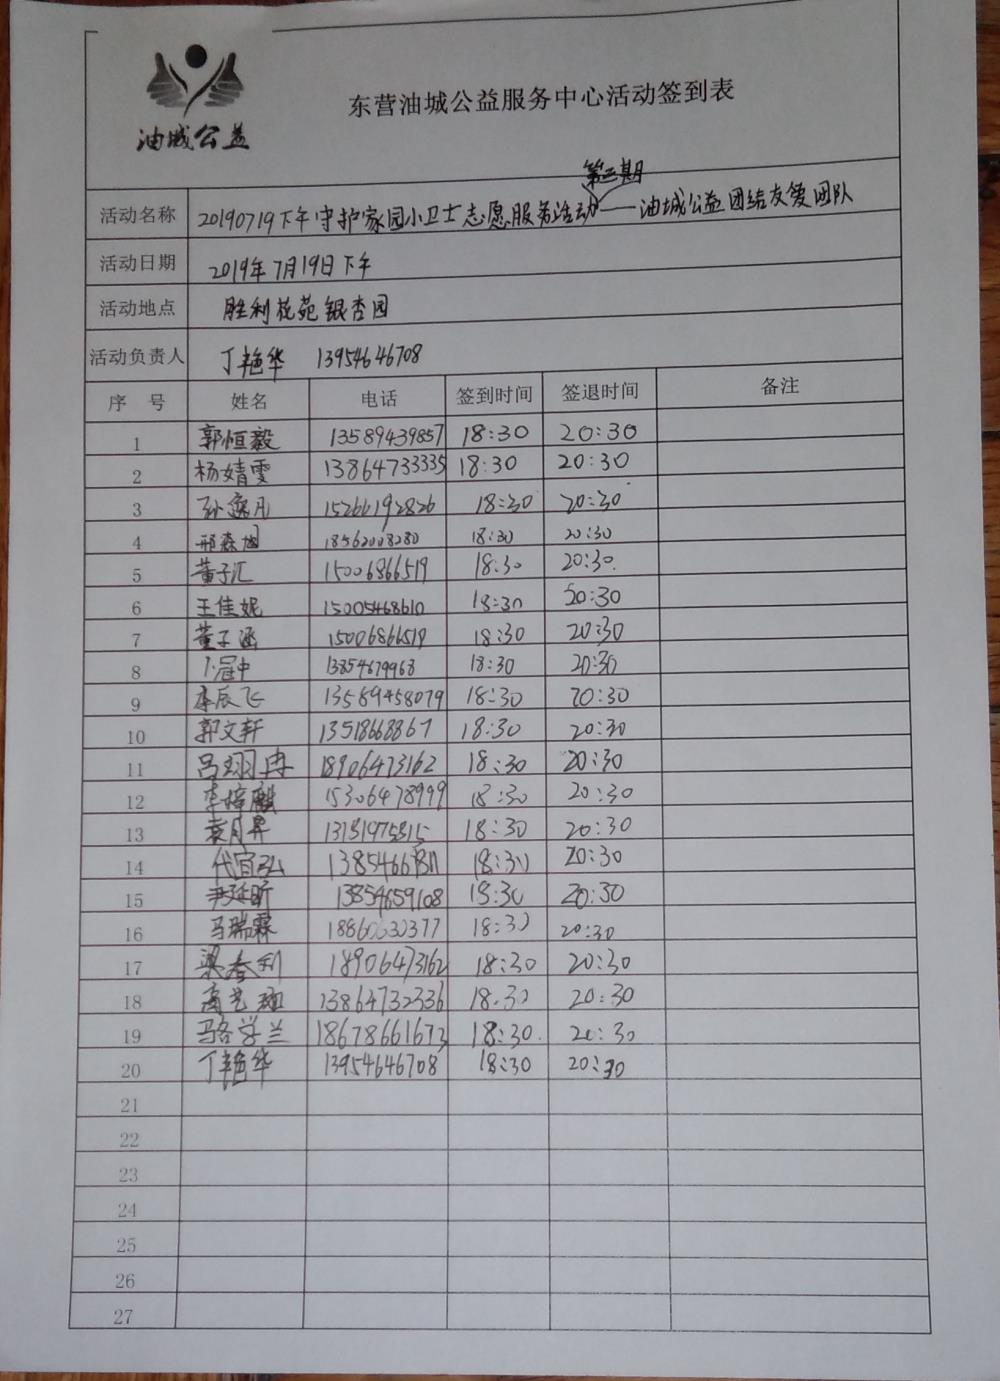 油城公益
东营油城公益服务中心活动签到表
第三期
活动名称 20190719下午守护家园小卫士志愿服务活动——油城公益团结友爱团队
活动日期 2019年7月19日下午
活动地点 胜利花苑银杏园
活动负责人 丁艳华 13954646708
序 号 姓名 电话 签到时间 签退时间 备注
1 郭恒毅 13589439857 18:30 20:30
2 杨婧雯 13864733335 18:30 20:30
3 孙逸凡 15266192826 18:30 20:30
4 邢森旭 18562008280 18:30 20:30
5 董子汇 15006866519 18:30 20:30.
6 王佳妮 15005468610 18:30 20:30
7 董子涵 15006866519 18:30 20:30
8 卜冠中 13854679968 18:30 20:30
9 李辰飞 13589458079 18:30 20:30
10 郭文轩 13518668867 18:30 20:30
11 吕翊冉 18906473162 18:30 20:30
12 李梓麒 15306478999 18:30 20:30
13 袁月昇 13181975815 18:30 20:30
14 代宜弘 18:30 20:30
15 尹延昕 13854659108 18:30 20:30
16 马瑞霖 18860630377 18:30 20:30
17 梁春利 18906473162 18:30 20:30
18 高艺 13864732336 18.30 20:30
19 马学兰 18678661673 18:30. 20:30
20 丁艳华 13954646708 18:30 20:30
21
22
23
24
25
26
27